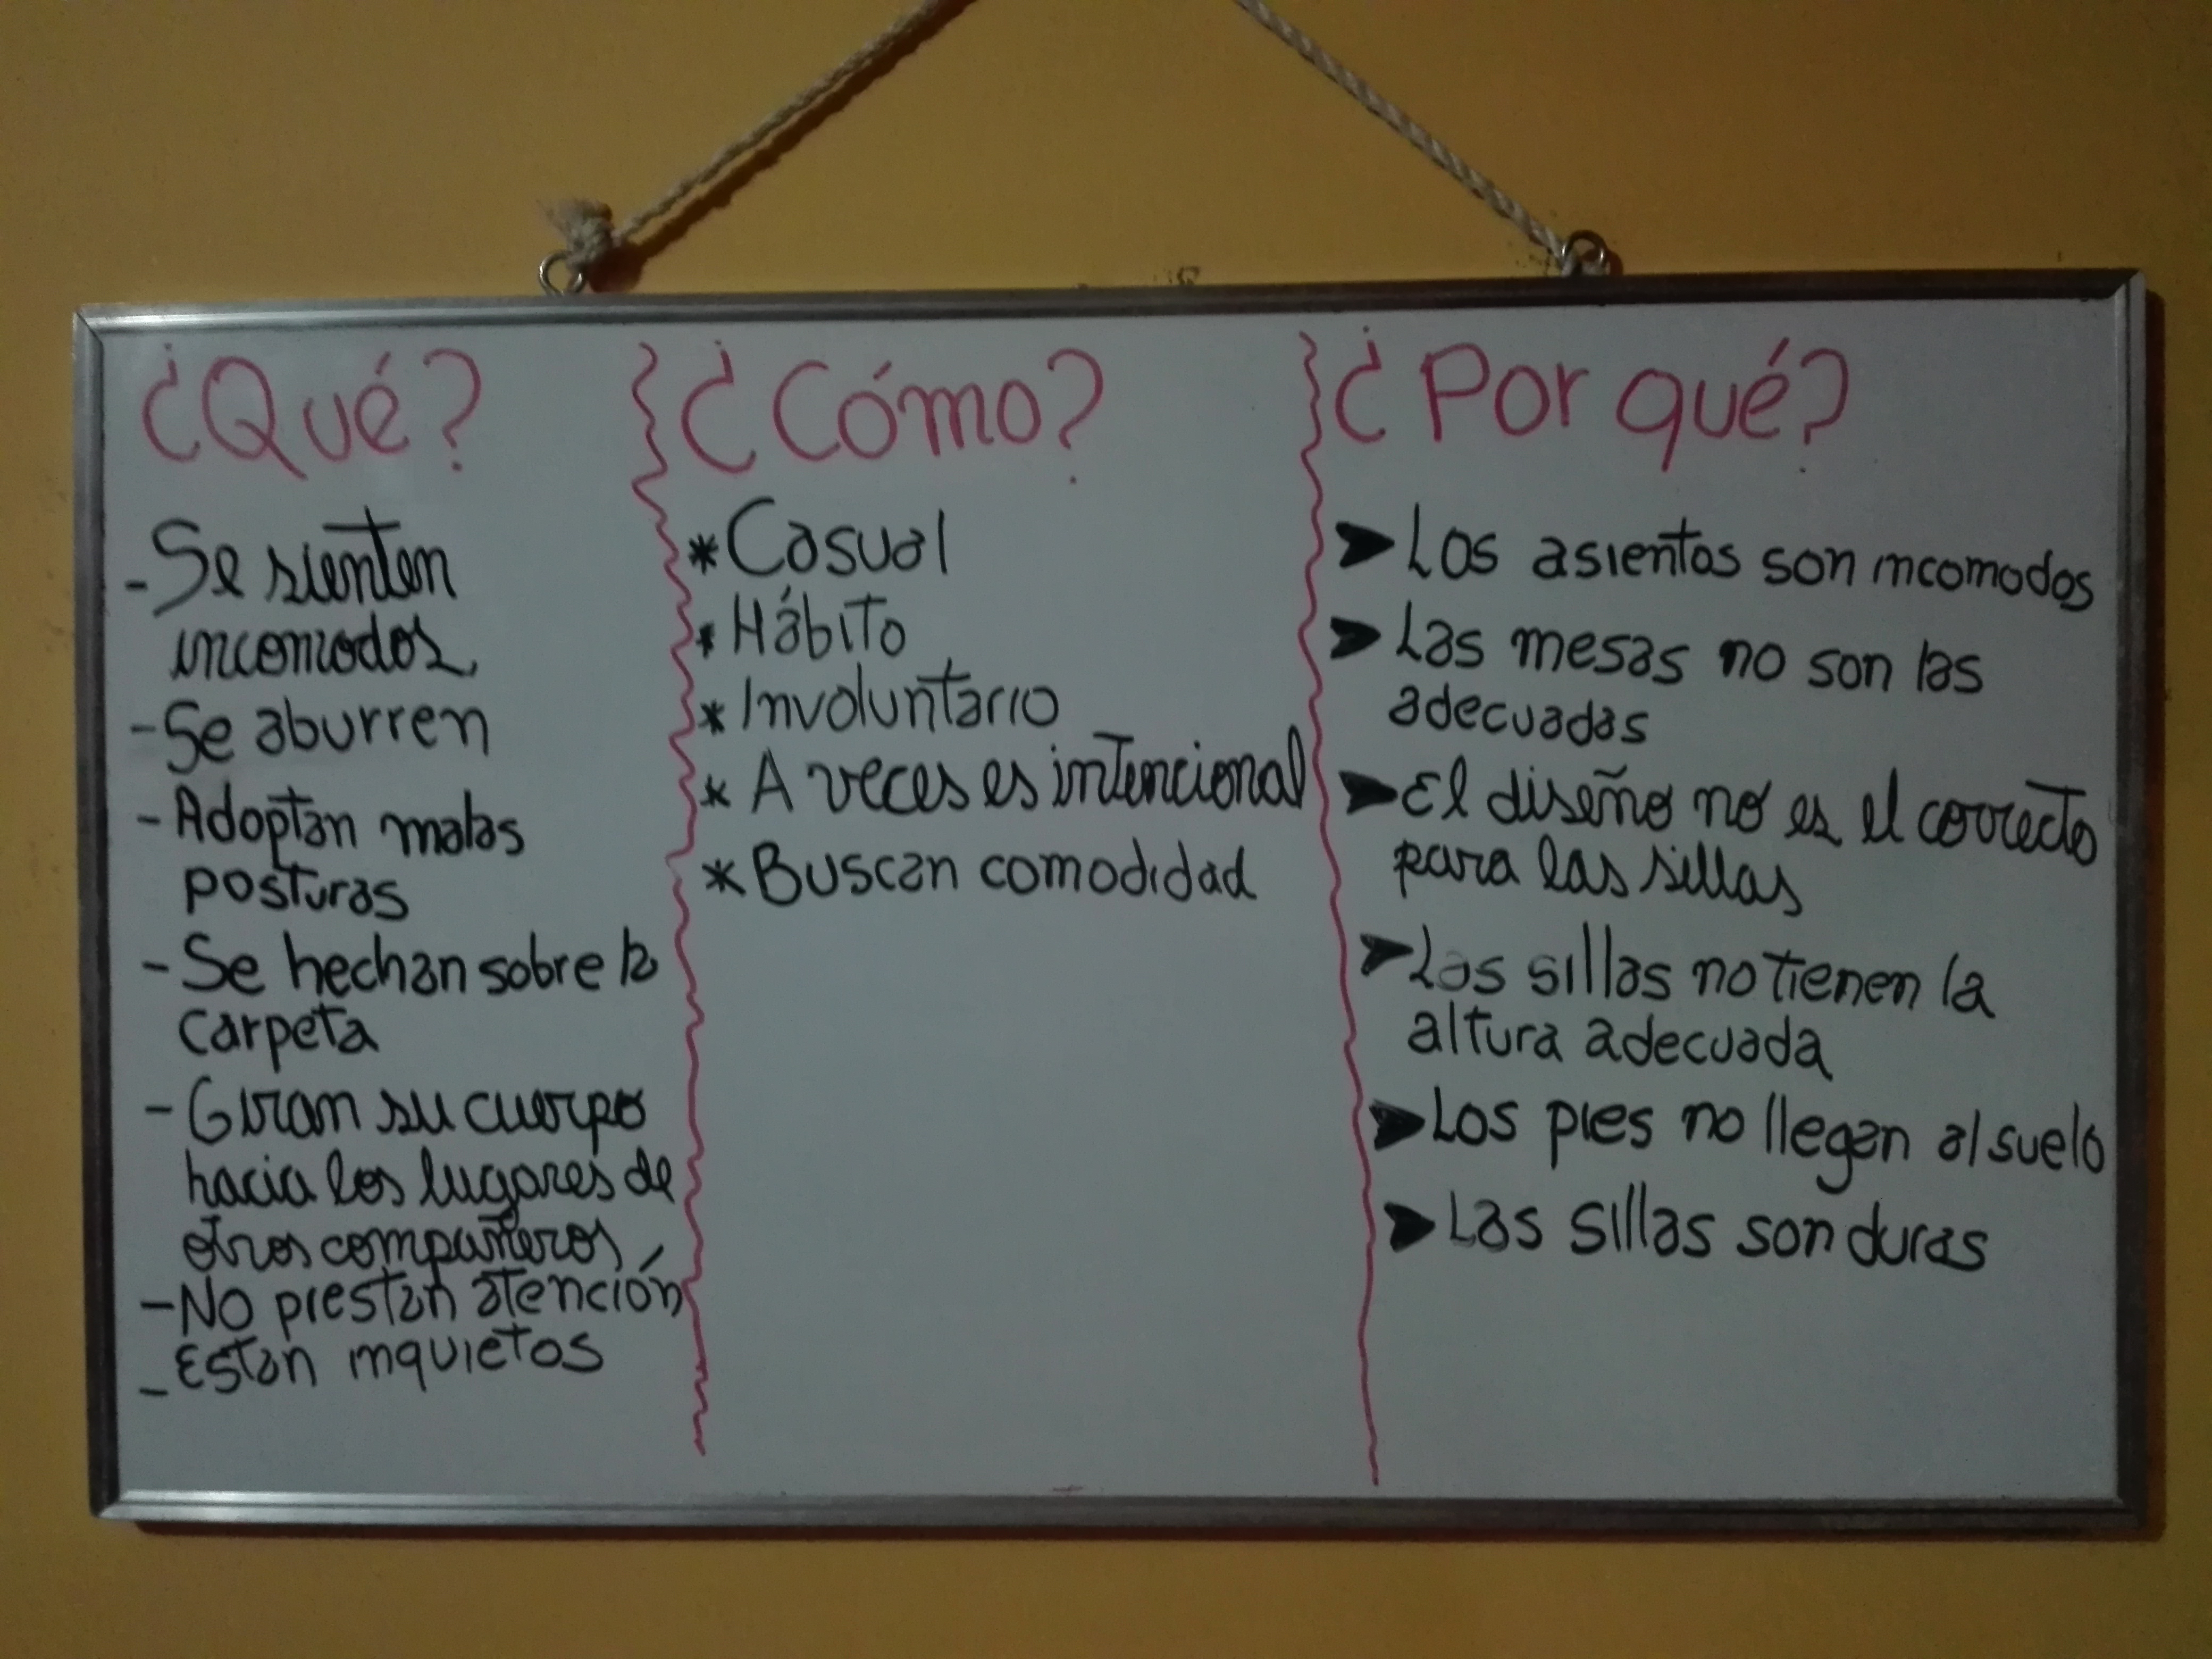 ¿Qué?
- Se sienten
incomodos
- Se aburren
- Adoptan malas
posturas
- Se hechan sobre la
carpeta
- Giran su cuerpo
hacia los lugares de
otros compañeros
- No prestan atención
- Están inquietos
¿Cómo?
* Casual
* Hábito
* Involuntario
* A veces es intencional
* Buscan comodidad
¿Por qué?
➤ Los asientos son incomodos
➤ Las mesas no son las
adecuadas
➤ El diseño no es el correcto
para las sillas
➤ Las sillas no tienen la
altura adecuada
➤ Los pies no llegan al suelo
➤ Las sillas son duras